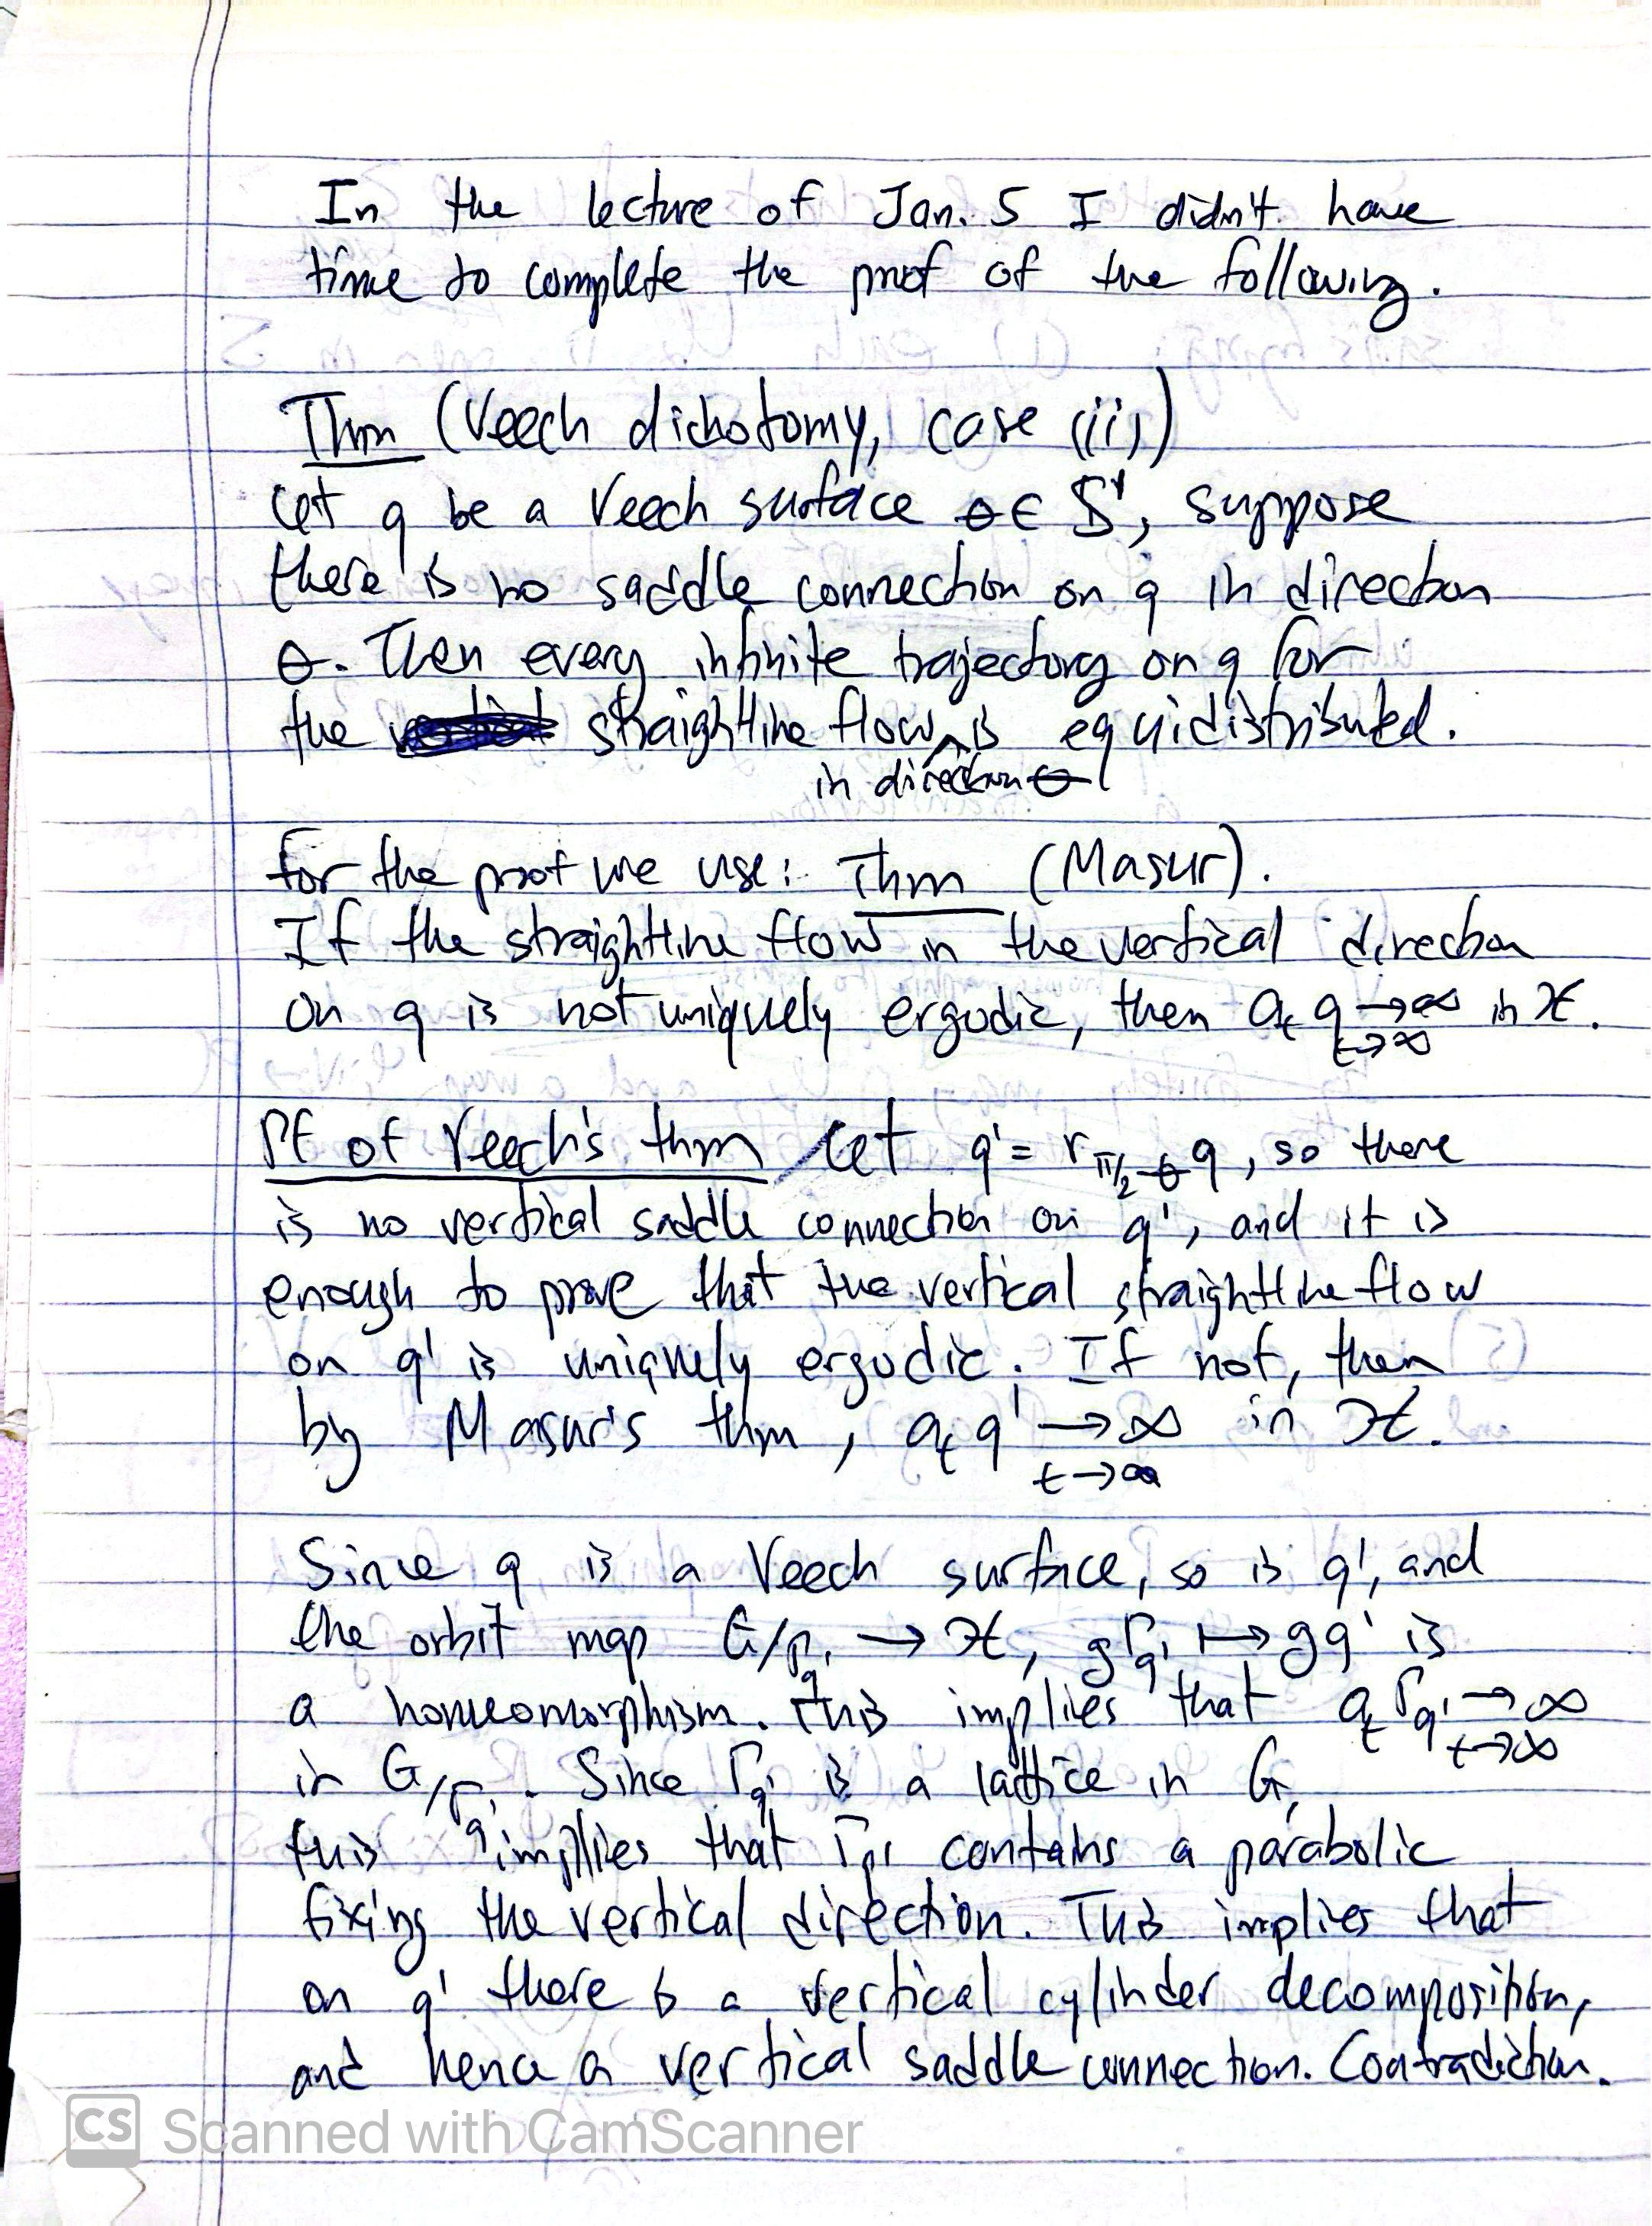 In the lecture of Jan. 5 I didn't have
time to complete the proof of the following.
Thm (Veech dichotomy, case (ii))
Let q be a Veech surface θ ∈ S¹, suppose
there is no saddle connection on q in direction
θ. Then every infinite trajectory on q for
the straightline flow is equidistributed.
in direction θ
For the proof we use: Thm (Masur).
If the straightline flow in the vertical direction
on q is not uniquely ergodic, then a_t q → ∞ in ℋ.
t→∞
Pf of Veech's thm Let q' = r_{π/2-θ} q, so there
is no vertical saddle connection on q', and it is
enough to prove that the vertical straightline flow
on q' is uniquely ergodic. If not, then
by Masur's thm, a_t q' → ∞ in ℋ.
t→∞
Since q is a Veech surface, so is q', and
the orbit map G/Γ_q' → ℋ, gΓ_q' ↦ gq' is
a homeomorphism. This implies that a_t Γ_q' → ∞
t→∞
in G/Γ_q'. Since Γ_q' is a lattice in G,
this implies that Γ_q' contains a parabolic
fixing the vertical direction. This implies that
on q' there is a vertical cylinder decomposition,
and hence a vertical saddle connection. Contradiction.
CS Scanned with CamScanner